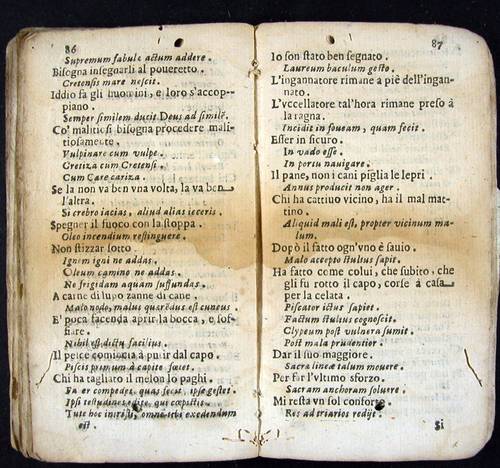 86
Supremum fabulæ actum addere.
Bisogna insegnarli al poueretto.
Cretensis mare nescit.
Iddio fa gli huomini, e loro s'accop-
piano.
Semper similem ducit Deus ad similē.
Co' malitiosi bisogna procedere mali-
tiosamente.
Vulpinare cum vulpe.
Cretiza cum Cretensi.
Cum Care cariza.
Se la non va ben vna volta, la va ben
l'altra.
Si crebro iacias, aliud alias ieceris.
Spegner il fuoco con la stoppa.
Oleo incendium restinguere.
Non stizzar sotto.
Ignem igni ne addas.
Oleum camino ne addas.
Ne frigidam aquam suffundas.
A carne di lupo zanne di cane.
Malo nodo, malus quærēdus est cuneus
E' poca facenda aprir la bocca, e sof-
fiare.
Nihil est dictu facilius.
Il pesce comincia à putir dal capo.
Piscis primum à capite fœtet.
Chi ha tagliato il melon lo paghi.
Faber compedes, quas fecit, ipse gestet.
Ipsi testudines edite, qui cœpistis.
Tute hoc intristi, omne tibi exedendum
est.
87
Io son stato ben segnato.
Laureum baculum gesto.
L'ingannatore rimane a piè dell'ingan-
nato.
L'vccellatore tal'hora rimane preso à
la ragna.
Incidit in foueam, quam fecit.
Esser in sicuro.
In vado esse.
In portu nauigare.
Il pane, non i cani piglia le lepri.
Annus producit non ager.
Chi ha cattiuo vicino, ha il mal mat-
tino.
Aliquid mali est, propter vicinum ma-
lum.
Dopò il fatto ogn'vno è sauio.
Malo accepto stultus sapit.
Ha fatto come colui, che subito, che
gli fu rotto il capo, corse à casa
per la celata.
Piscator ictus sapiet.
Factum stultus cognoscit.
Clypeum post vulnera sumit.
Post mala prudentior.
Dar il suo maggiore.
Sacra lineæ talum mouere.
Per far l'vltimo sforzo.
Sacram anchoram soluere.
Mi resta vn sol conforto.
Res ad triarios redijt.
Si